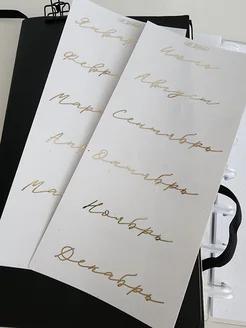 Январ
Февр
Мар
Ап
Ма
Июль
Август
Сентябрь
Октябрь
Ноябрь
Декабрь